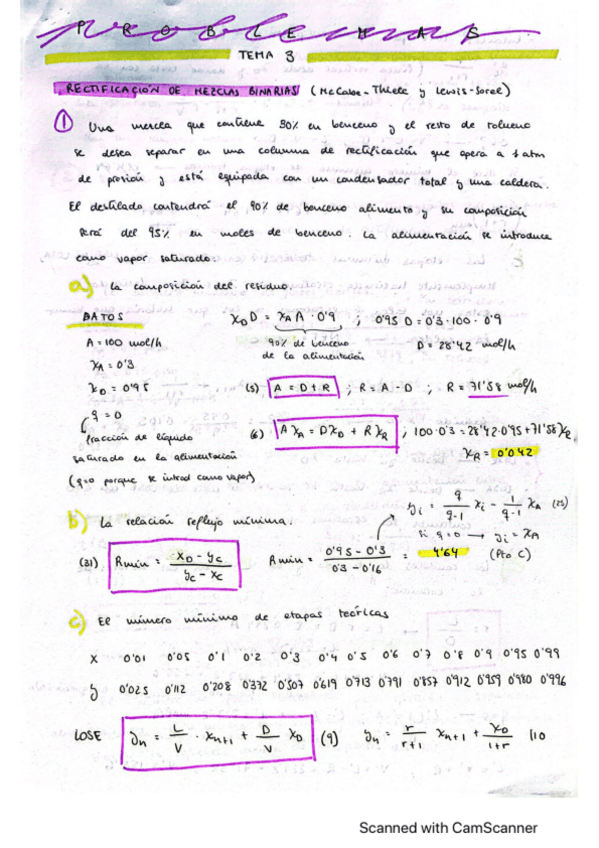 PROBLEMAS
TEMA 3
RECTIFICACIÓN DE MEZCLAS BINARIAS (McCabe-Thiele y Lewis-Sorel)
① Una mezcla que contiene 30% en benceno y el resto de tolueno
se desea separar en una columna de rectificación que opera a 1 atm
de presión y está equipada con un condensador total y una caldera.
El destilado contendrá el 90% de benceno alimento y su composición
será del 95% en moles de benceno. La alimentación se introduce
como vapor saturado:
a) La composición del residuo.
DATOS
A = 100 mol/h
x_A = 0'3
x_D = 0'95
q = 0
fracción de líquido
saturado en la alimentación
(q=0 porque se introd como vapor)
x_D D = x_A A · 0'9 ; 0'95 D = 0'3 · 100 · 0'9
90% de benceno
de la alimentación
D = 28'42 mol/h
(5) A = D + R ; R = A - D ; R = 71'58 mol/h
(6) A x_A = D x_D + R x_R , 100·0'3 = 28'42·0'95 + 71'58 x_R
x_R = 0'042
b) La relación reflujo mínima.
y_i = q/(q-1) x_i - 1/(q-1) x_A (25)
si q=0 → y_i = x_A
(Pto C)
(31) Rmin = (x_D - y_C)/(y_C - x_C) Rmin = (0'95 - 0'3)/(0'3 - 0'16) = 4'64
c) El número mínimo de etapas teóricas
X 0'01 0'05 0'1 0'2 0'3 0'4 0'5 0'6 0'7 0'8 0'9 0'95 0'99
y 0'025 0'112 0'208 0'372 0'507 0'619 0'713 0'791 0'857 0'912 0'959 0'980 0'996
LOSE y_n = L/V · x_n+1 + D/V x_D (9) y_n = r/(r+1) x_n+1 + x_D/(1+r) (10
Scanned with CamScanner